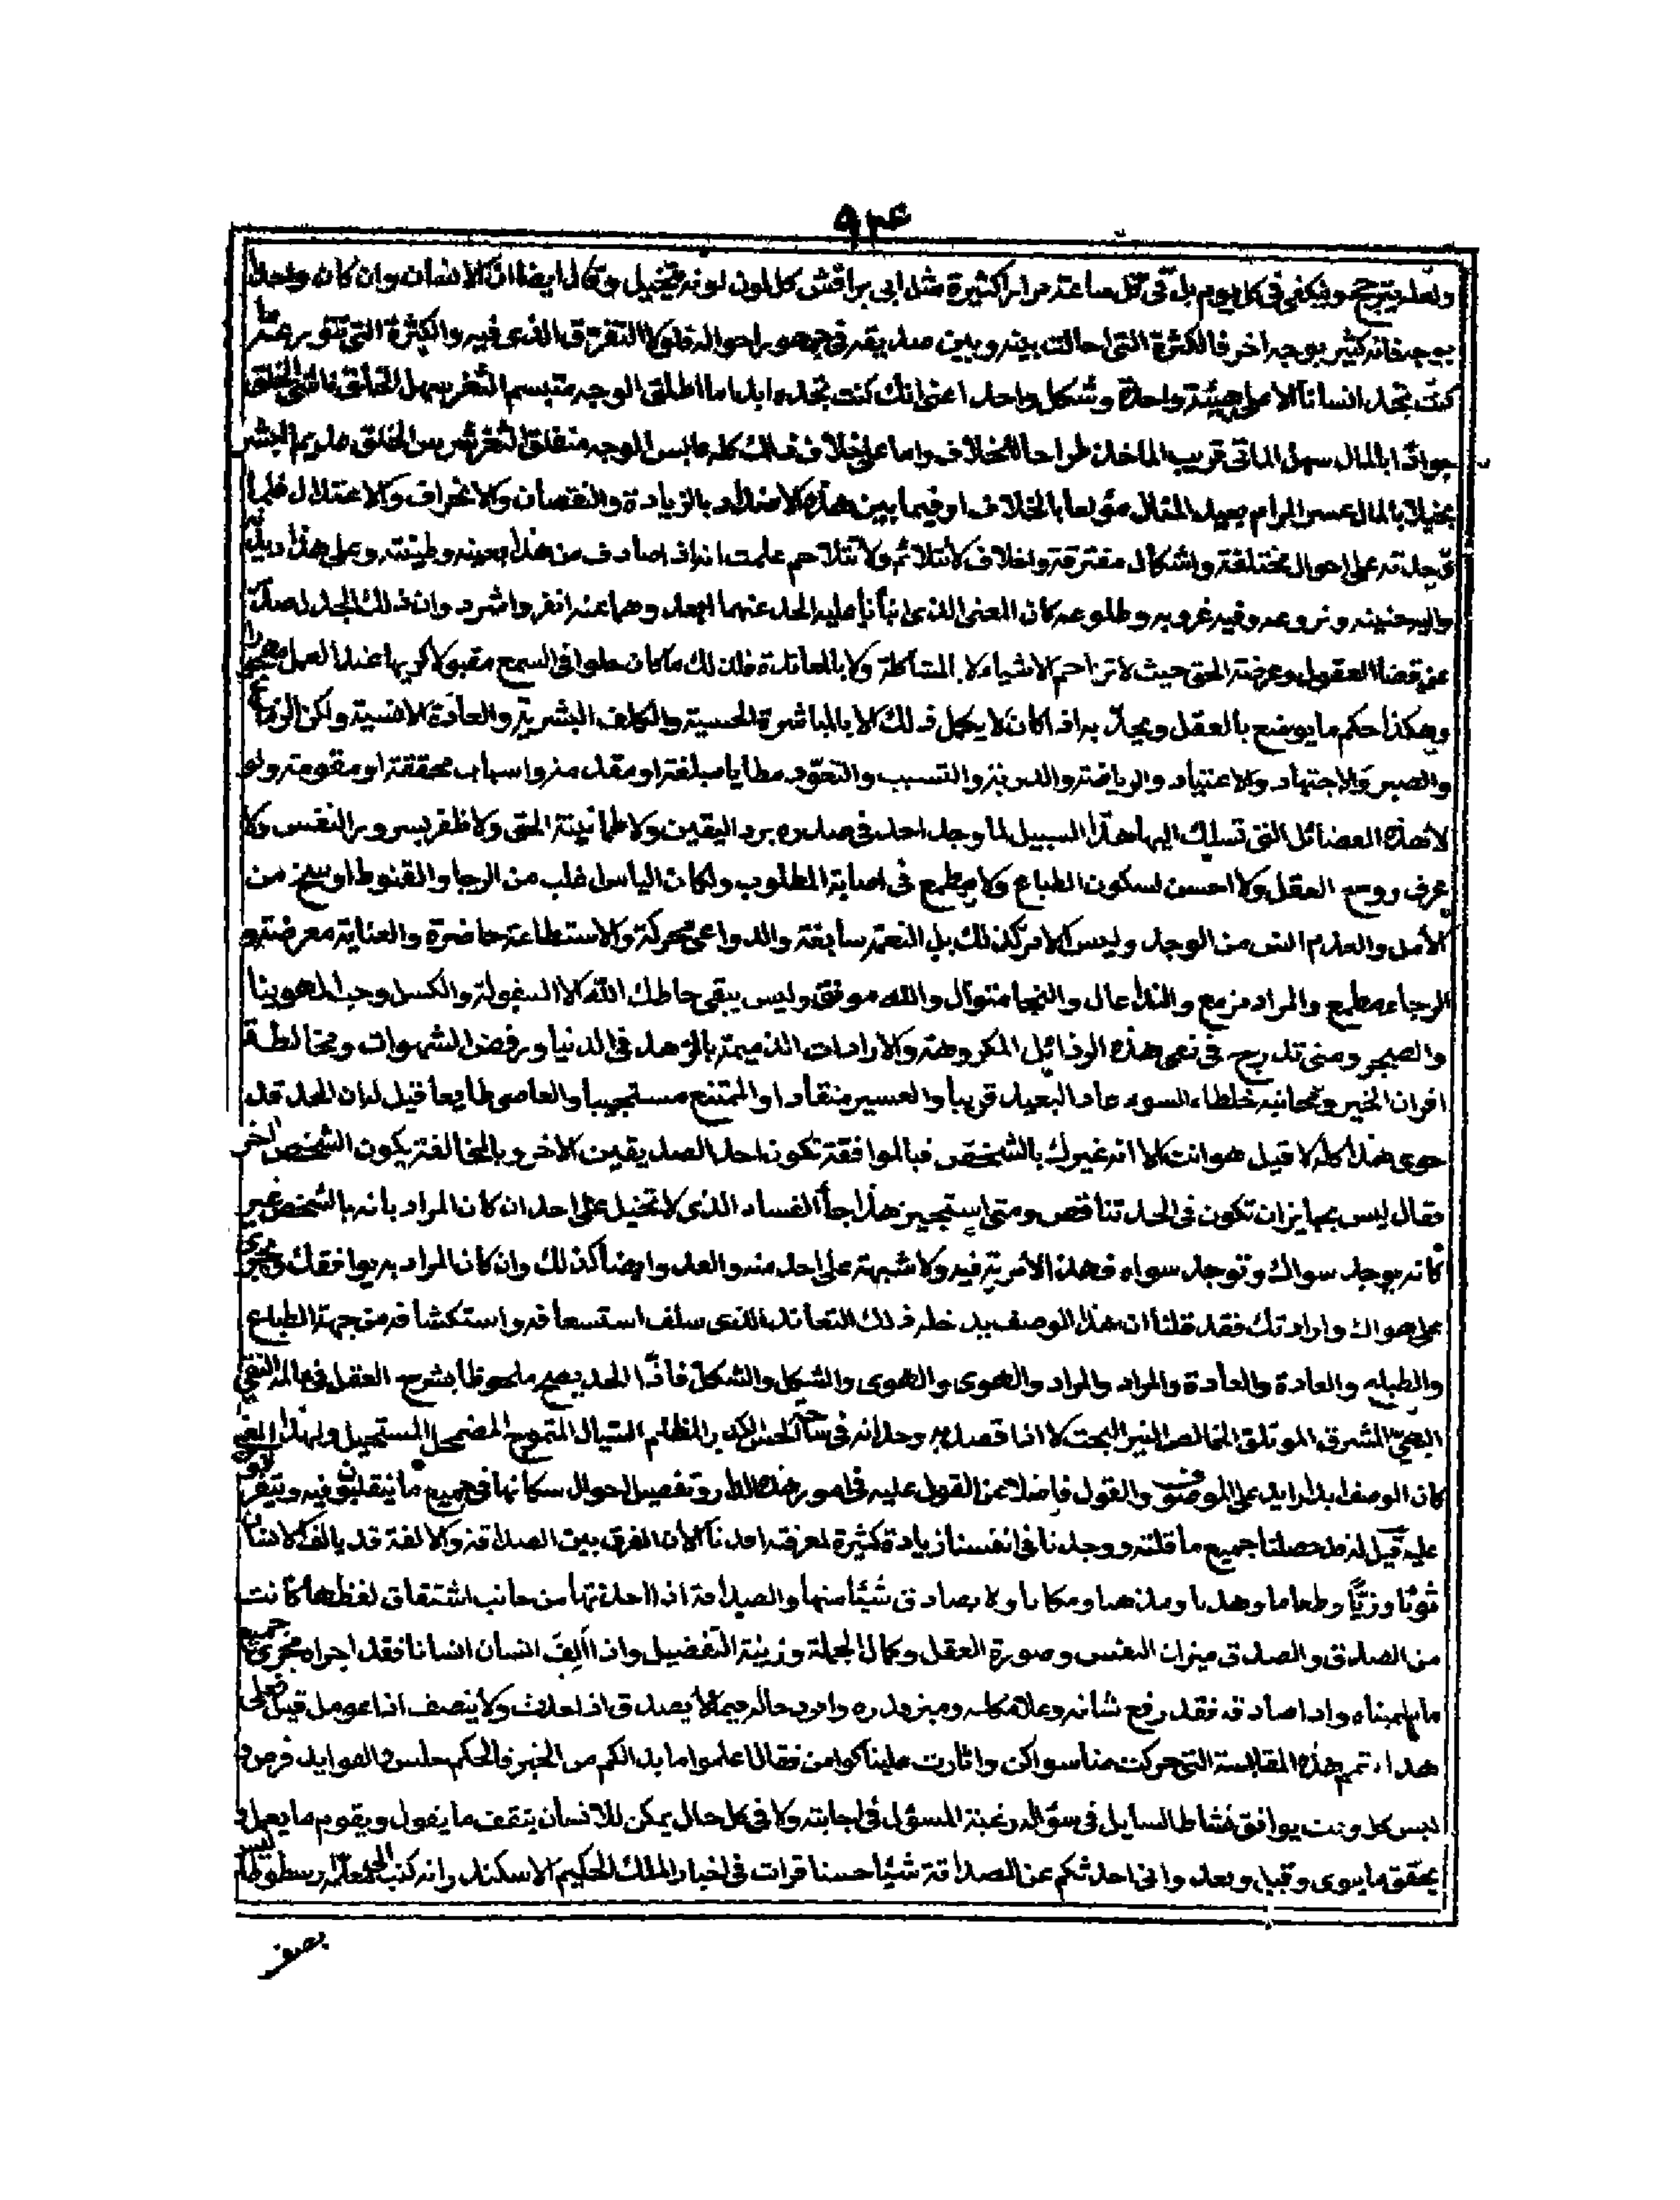 ٩٣۴
ولعله يترجح وينكفي في كل يوم بل في كل ساعة مرارا كثيرة مثل ابي براقش كل لون لونه يتخيل وقال ايضا ان الانسان وان كان واحدا
بوجه فانه كثير بوجه اخر فالكثرة التي حالت بينه وبين صديقه في جمهور احواله فلولا التفرق الذي فيه والكثرة التي تتقو
كنت تجد انسانا الا على هيئة واحدة وشكل واحد اعني انك كنت تجده ابدا اما طلق الوجه متبسم الثغر سهل الخلق
جوادا بالمال سهل الماتى قريب الماخذ طراحا للخلاف واما على خلاف ذلك كله عابس الوجه منغلق الثغر شرس الخلق البشر
بخيلا بالمال عسر المرام بعيد المنال مولعا بالخلاف او فيما بين هذه الاضداد بالزيادة والنقصان والانحراف والاعتدال فلما
وجدته على احوال مختلفة واشكال مفترقة واخلاف لا تتلائم ولا تتلاحم علمت انه صادف من هذا بعينه وطينته وعلى هذا
واليه حنينه ونزوعه وفيه غروبه وطلوعه كان المعنى الذي انبأنا عليه الحد عنهما ابعد وهما عنه انفر واشرد وان ذلك الحد
عن قضا العقول وعرضة الحق حيث لا تزاحم الاشياء لا المشاكلة ولا بالمعاندة فلذلك ما كان حلوا في السمع مقبولا عند العمل
وهكذا حكم ما يوضح بالعقل ويحد به اذا كان لا يكمل ذلك الا بالمباشرة الحسية والكلف البشرية والعادة الانسية ولكن
والصبر والاجتهاد والاعتياد والرياضة والدربة والتسبب والتعود مطايا مبلغة او مقدمة واسباب محققة او مقومة ولو
لا هذه الفضائل التي تسلك اليها هذا السبيل لما وجد احد في صدره برد اليقين ولا طمانينة الحق ولا ظفر بسرور النفس ولا
عرف روح العقل ولا احسن لسكون الطباع ولا مطمع في اصابة المطلوب ولكان الياس اغلب من الرجا والقنوط ارسخ من
الامل والعدم من الوجد وليس الامر كذلك بل النعم سابغة والدواعي محركة والاستطاعة حاضرة والعناية معرضة و
الرجاء مطمع والمراد مزمع والندا عال والنجا متوال والله موفق وليس يبقى حاطك الله الا الكسل وحب الهوينا
والضجر ومتى تدرج في نعى هذه الرذائل المكروهة والارادات الذميمة بالزهد في الدنيا ورفض الشهوات ومخالطة
اقران الخير ومجانبة خلطاء السوء عاد البعيد قريبا والعسير منقادا والممتنع مستجيبا والعاصي طايعا قيل له ان الحد قد
حوى هذا كله لا قيل هو انت الا انه غيرك بالشخص فبالموافقة تكون احد الصديقين الاخر وبالمخالفة يكون الشخص اخر
فقال ليس بجايز ان تكون في الحد تناقص ومتى استجيز هذا جاء الفساد الذي لا تخيل على احد ان كان المراد بانه بالشخص غير
كانه يوجد سواك وتوجد سواه فهذا لا مرية فيه ولا شبهة على احد منه والعد وايضا كذلك وان كان المراد به يوافقك
على هواك وارادتك فقد قلنا ان هذا الوصف التعاند الذي سلف استسعافه واستكشافه من جهة الطباع
والطباع والعادة والعادة والمراد والمراد والهوى والهوى والشكل والشكل فاذا الحد يصح ملحوظا بشرح العقل في عالمه النقي
البهي المشرق المونلق الخالص النير البحت لا اذا قصد وجدانه في الكدر المظلم السيال المتموج المضمحل المستحيل ولهذا
كان الوصف زايد على الموصوف والقول فاضلا عن القول عليه في امور هذه الدار وتفصيل احوال سكانها في جميع ما يتقلبون فيه
عليه قيل له قد حصلنا جميع ما قلته ووجدنا في انفسنا زيادة كثيرة لمعرفته افدنا الان الفرق بين الصداقة والالفة قد يالف الانسان
ثوبا وزيا وطعاما ومذهبا ومكانا ولا يصادق شيئا منها والصداقة اذا اخذتها من جانب اشتقاق لفظها كانت
من الصدق والصدق ميزان النفس وصورة العقل وكمال الجملة وزينة التفضيل واذا الف انسان انسانا فقد اجراه مجرى
ما واذا صادقه فقد رفع شانه وعلا مكانه وميز قدره حاله فيما لا يصدق اذا حدث ولا ينصف اذا عومل قيل
هذا تم هذه المقابسة التي حركت منا سواكن واثارت علينا كوامن فقال اعلموا ما بدا لكم من الخير فالحكم خلس والفوايد فرص و
ليس كل وقت يوافق نشاط السايل في سؤاله رغبة المسؤل في اجابته ولا في كل حال يمكن للانسان يتقف ما يقول ويقوم ما يعمل و
يحقق ما ينوى وقبل وبعد واني احدثكم عن الصداقة شيئا حسنا قرات في اخبار الملك الحكيم الاسكندر وانه كتب الى معلمه ارسطوطا